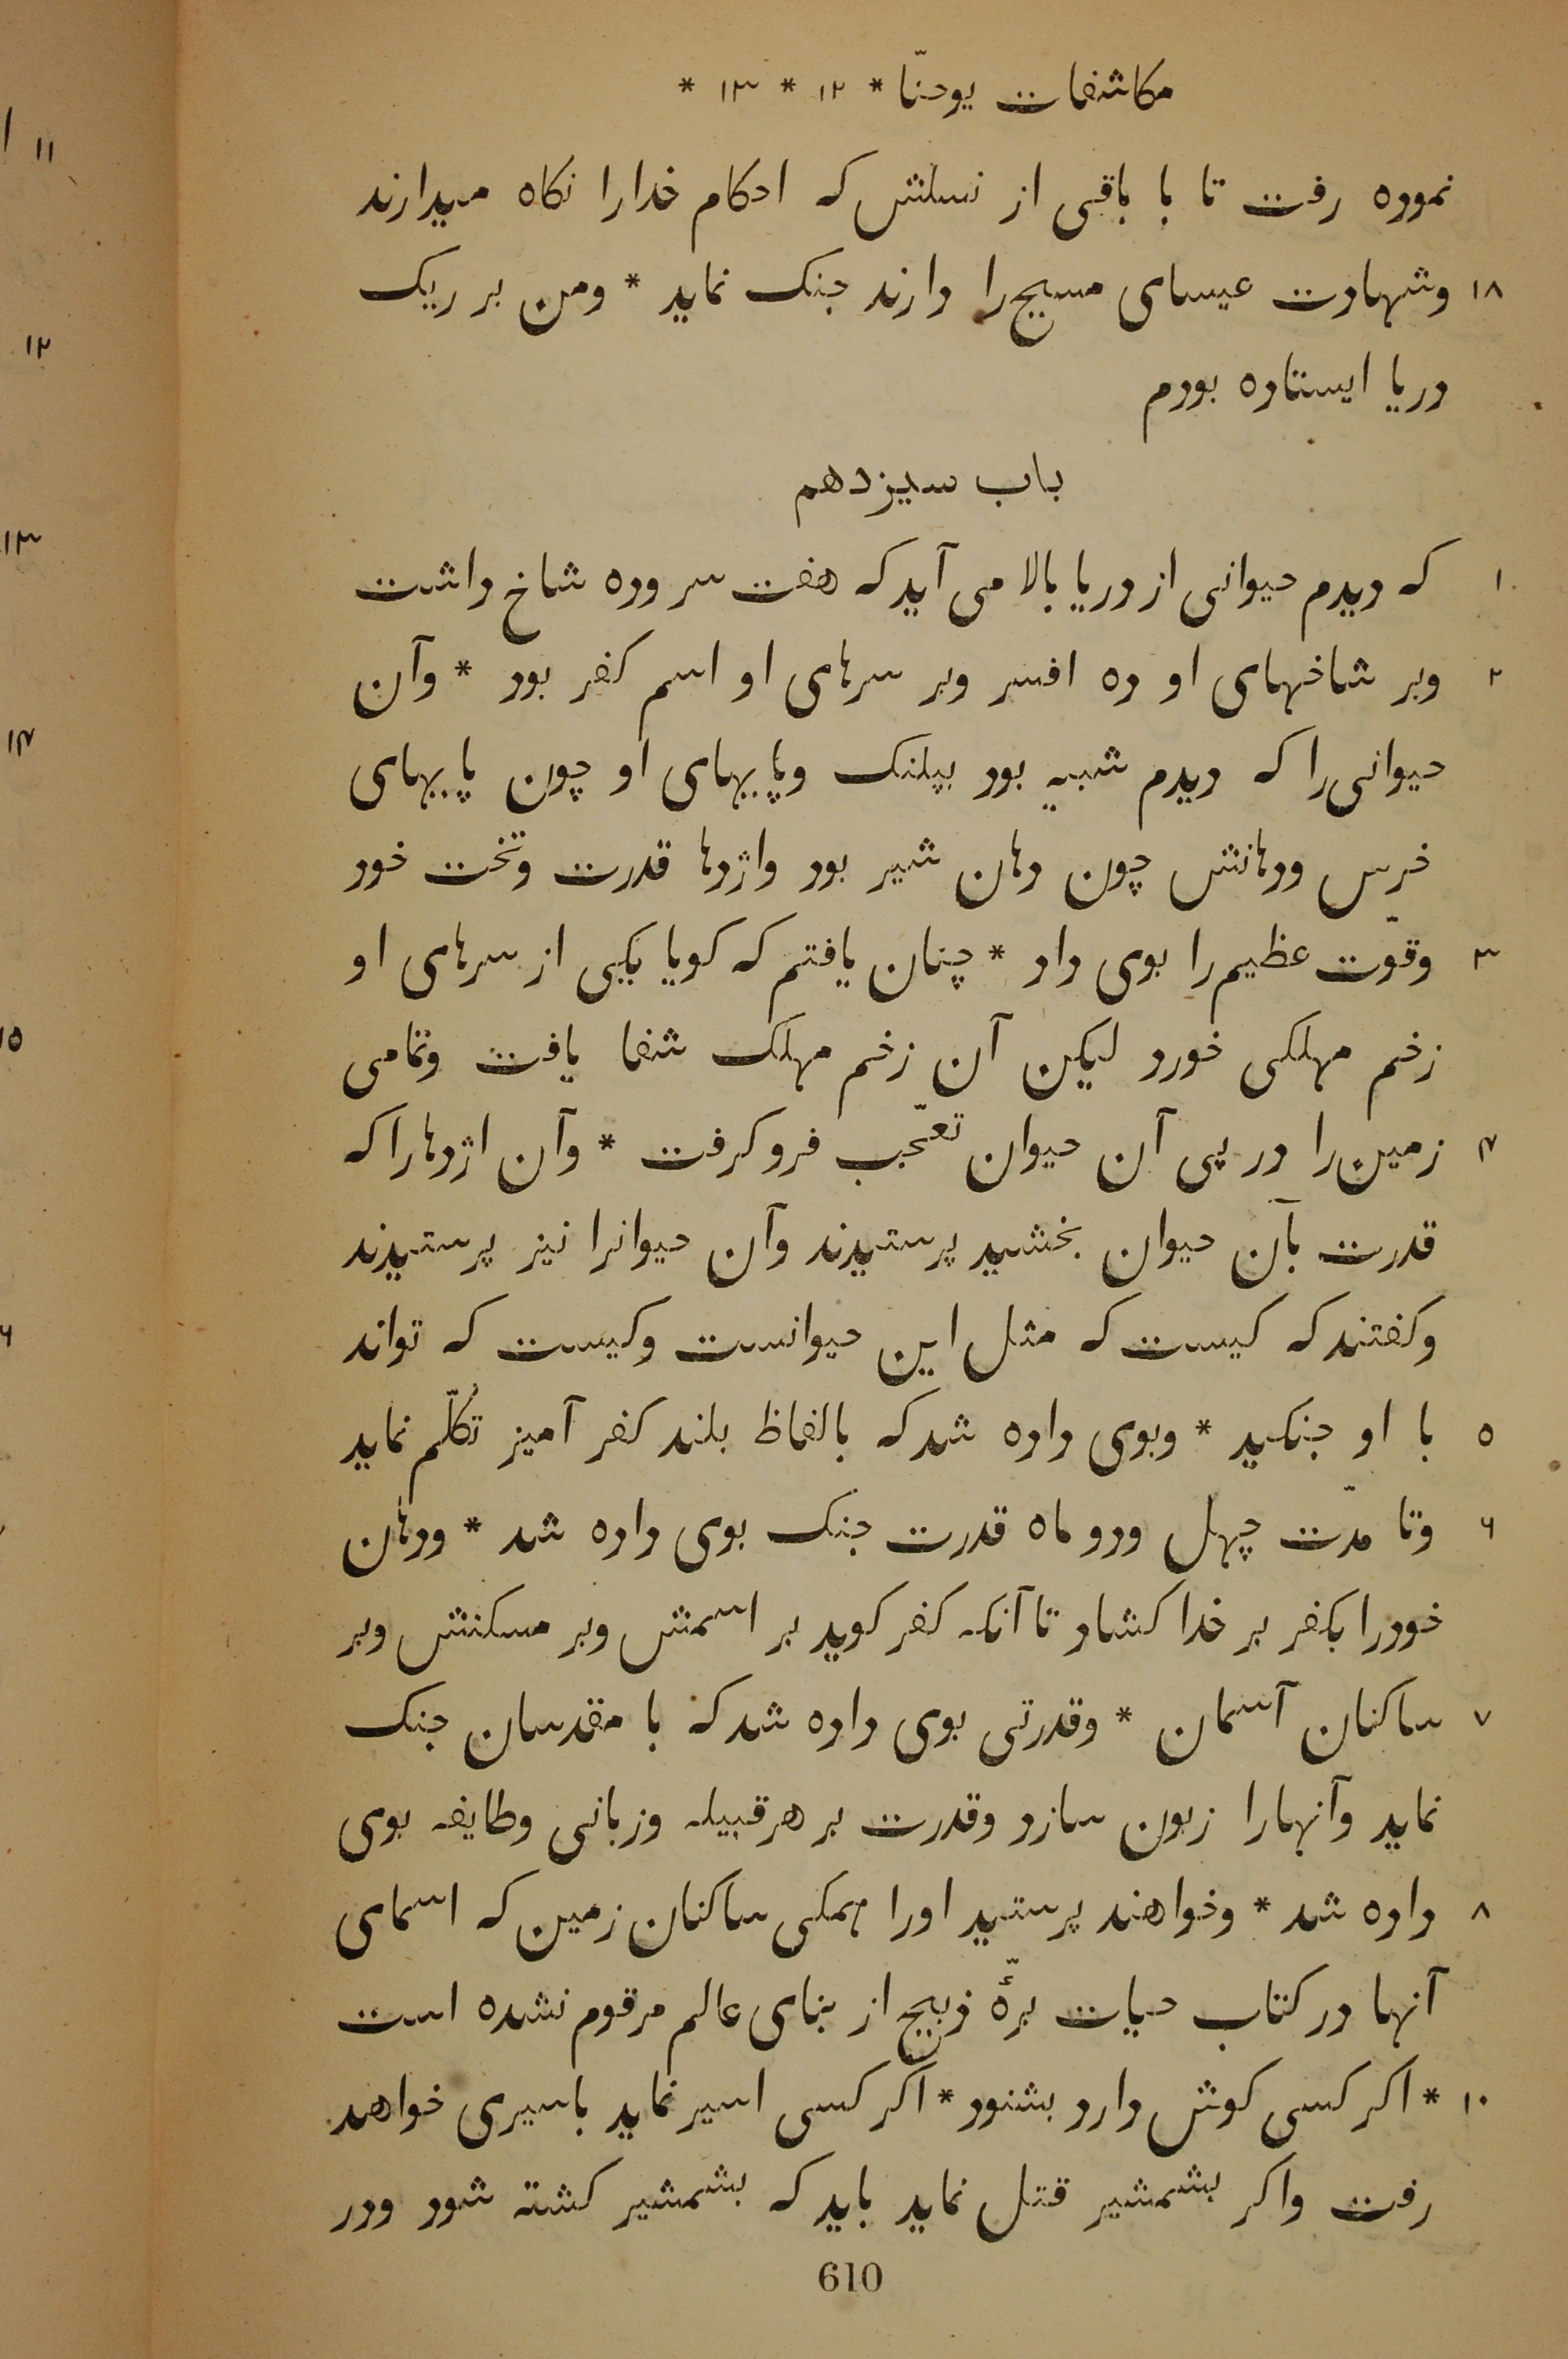 مکاشفات یوحنّا * ۱۲ * ۱۳ *
نموده رفت تا با باقی از نسلش که احکام خدارا نکاه میدارند
۱۸ وشهادت عیسای مسیح را دارند جنک نماید * ومن بر ریک
دریا ایستاده بودم
باب سیزدهم
۱ که دیدم حیوانی از دریا بالا می آید که هفت سر وده شاخ داشت
۲ وبر شاخهای او ده افسر وبر سرهای او اسم کفر بود * وآن
حیوانی را که دیدم شبیه بود بپلنک وپایهای او چون پایهای
خرس ودهانش چون دهان شیر بود واژدها قدرت وتخت خود
۳ وقوّت عظیم را بوی داد * چنان یافتم که کویا یکی از سرهای او
زخم مهلکی خورد لیکن آن زخم مهلک شفا یافت وتمامی
۴ زمین را در پی آن حیوان تعجّب فرو کرفت * وآن اژدها را که
قدرت بآن حیوان بخشید پرستیدند وآن حیوانرا نیز پرستیدند
وکفتند که کیست که مثل این حیوانست وکیست که تواند
۵ با او جنکید * وبوی داده شد که بالفاظ بلند کفر آمیز تکلّم نماید
۶ وتا مدّت چهل ودو ماه قدرت جنک بوی داده شد * ودهان
خودرا بکفر بر خدا کشاد تا آنکه کفر کوید بر اسمش وبر مسکنش وبر
۷ ساکنان آسمان * وقدرتی بوی داده شد که با مقدسان جنک
نماید وآنهارا زبون سازد وقدرت بر هر قبیله وزبانی وطایفه بوی
۸ داده شد * وخواهند پرستید اورا همکی ساکنان زمین که اسمای
آنها در کتاب حیات برّهٔ ذبیح از بنای عالم مرقوم نشده است
۱۰ * اکر کسی کوش دارد بشنود * اکر کسی اسیر نماید باسیری خواهد
رفت واکر بشمشیر قتل نماید باید که بشمشیر کشته شود ودر
610
۱۱
۱۲
۱۳
۱۴
۱۵